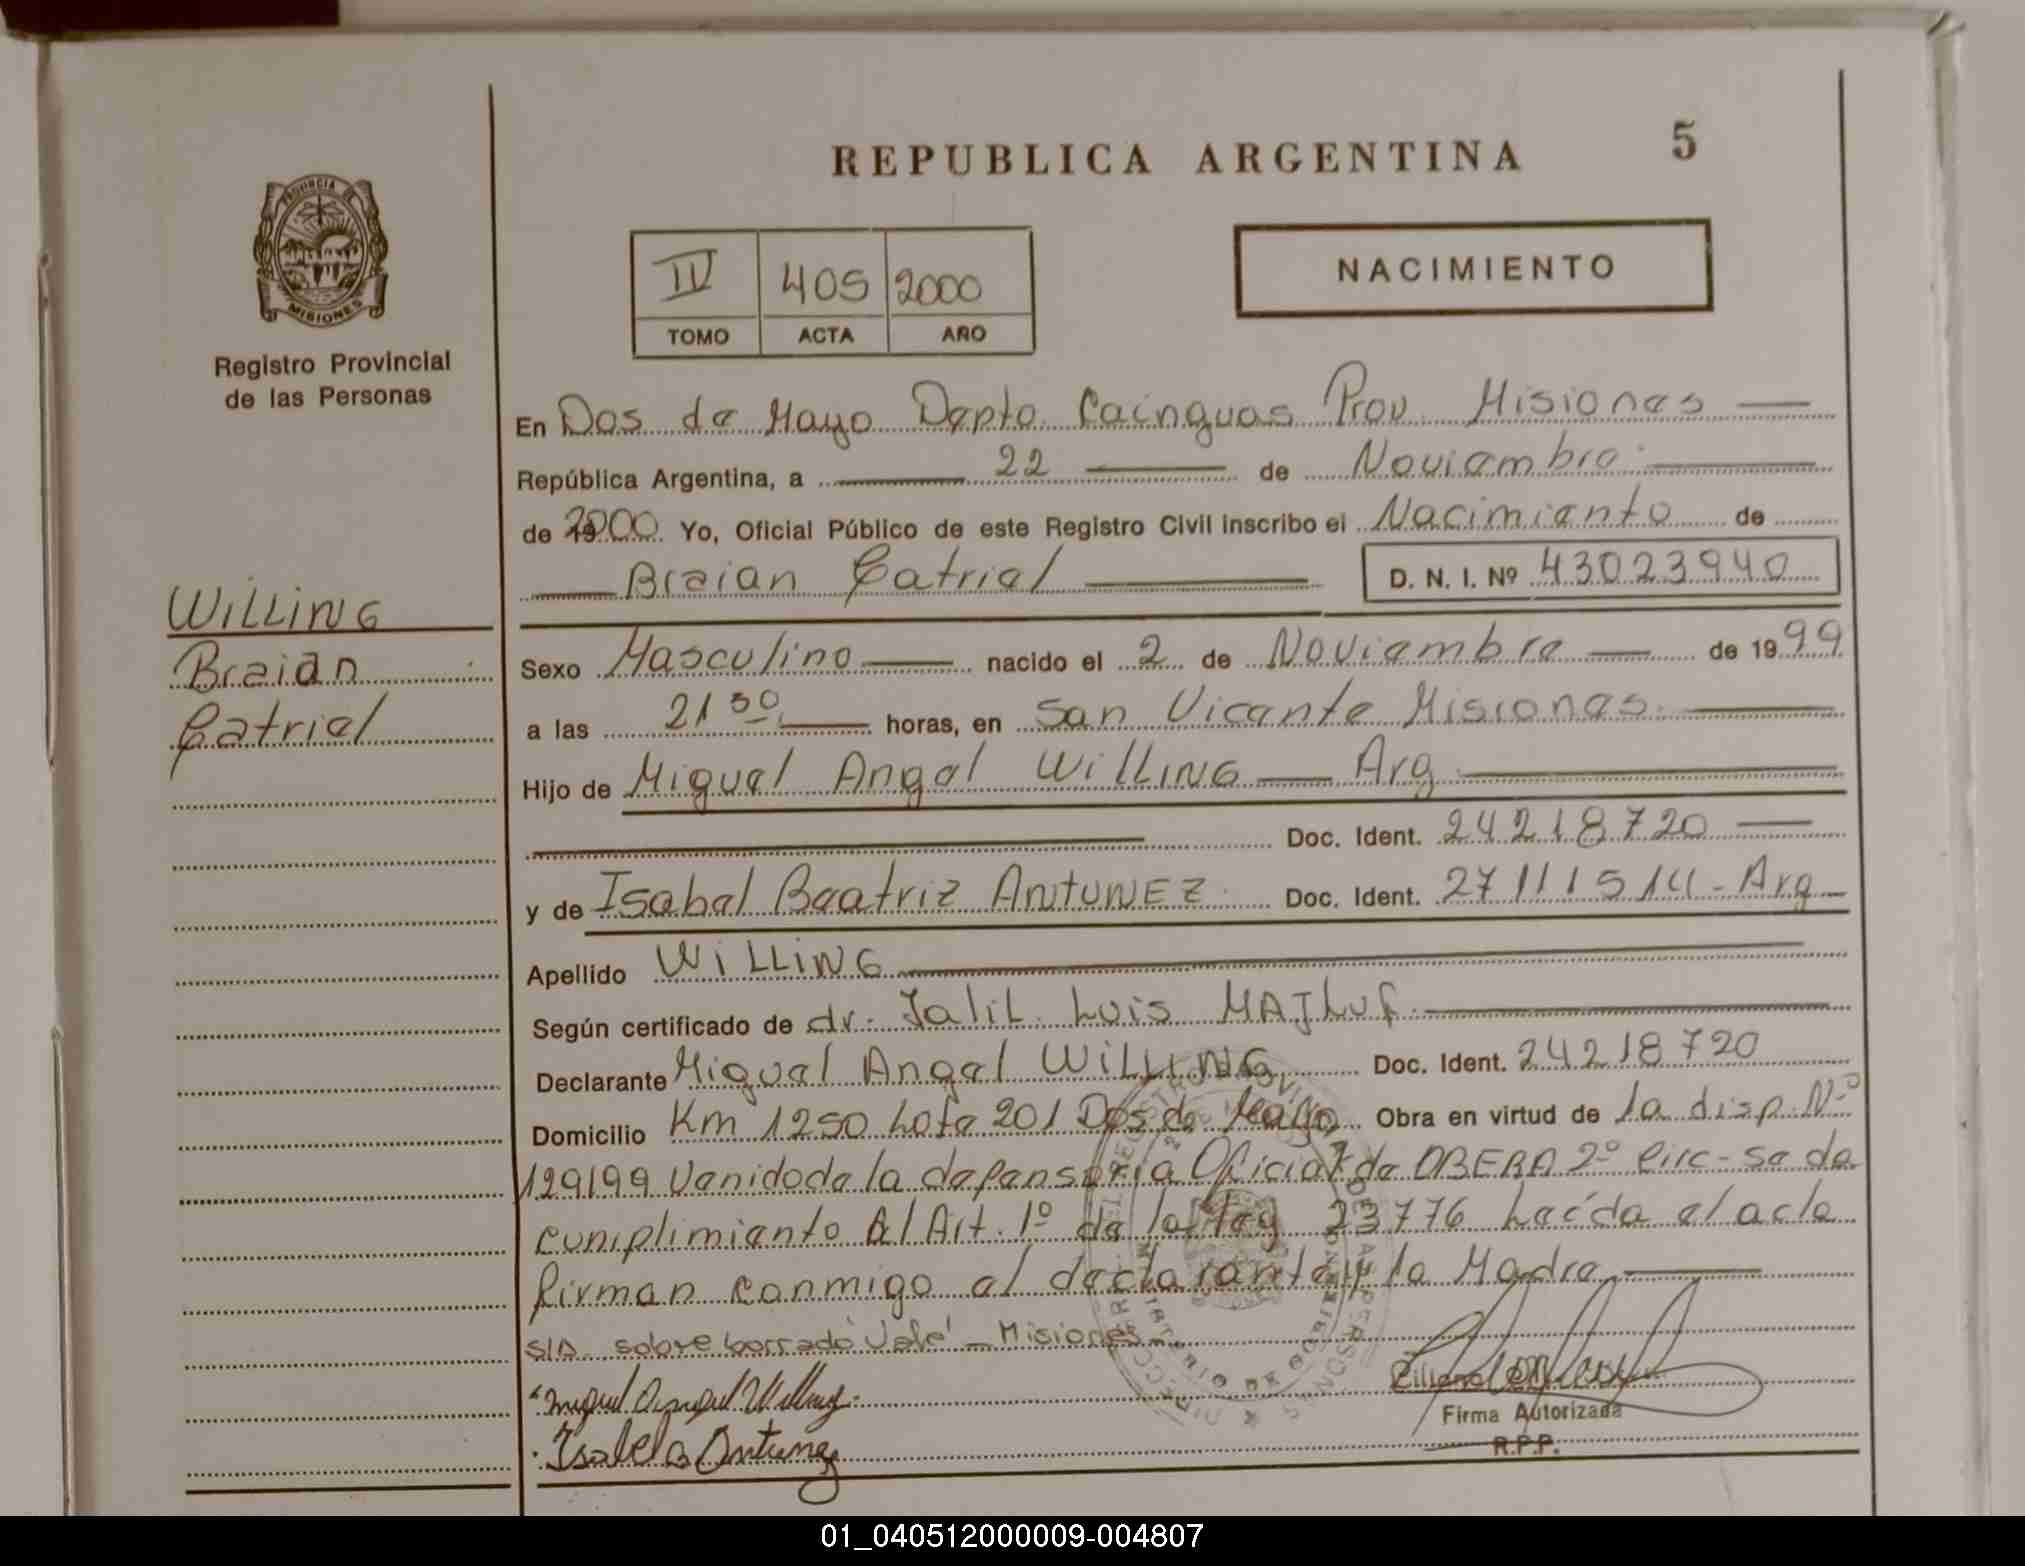 REPUBLICA ARGENTINA 5
PROVINCIA DE
MISIONES
Registro Provincial
de las Personas
IV 405 2000
TOMO ACTA AÑO
NACIMIENTO
En Dos de Mayo Depto. Cainguas Prov. Misiones
República Argentina, a 22 de Noviembre
de 2000 Yo, Oficial Público de este Registro Civil inscribo el Nacimiento de
Braian Catriel D. N. I. Nº 43023940
WILLING
Braian
Catriel
Sexo Masculino nacido el 2 de Noviembre de 1999
a las 21 30 horas, en San Vicente Misiones
Hijo de Miguel Angel WILLING Arg
Doc. Ident. 24218720
y de Isabel Beatriz ANTUNEZ Doc. Ident. 27111514 - Arg
Apellido WILLING
Según certificado de dr. Jalil Luis MAJLUF
Declarante Miguel Angel WILLING Doc. Ident. 24218720
Domicilio Km 1250 Lote 201 Dos de Mayo Obra en virtud de la disp. Nº
129/99 Venido de la defensoria Oficial de OBERA 2º Circ - se da
cumplimiento al Art. 1º de la ley 23776 Leída el acta
firman conmigo el declarante y la Madre
S/D sobre borrado Vale - Misiones
Miguel Angel Willing
Isabel B Antunez
Firma Autorizada
R.P.P.
01_040512000009-004807